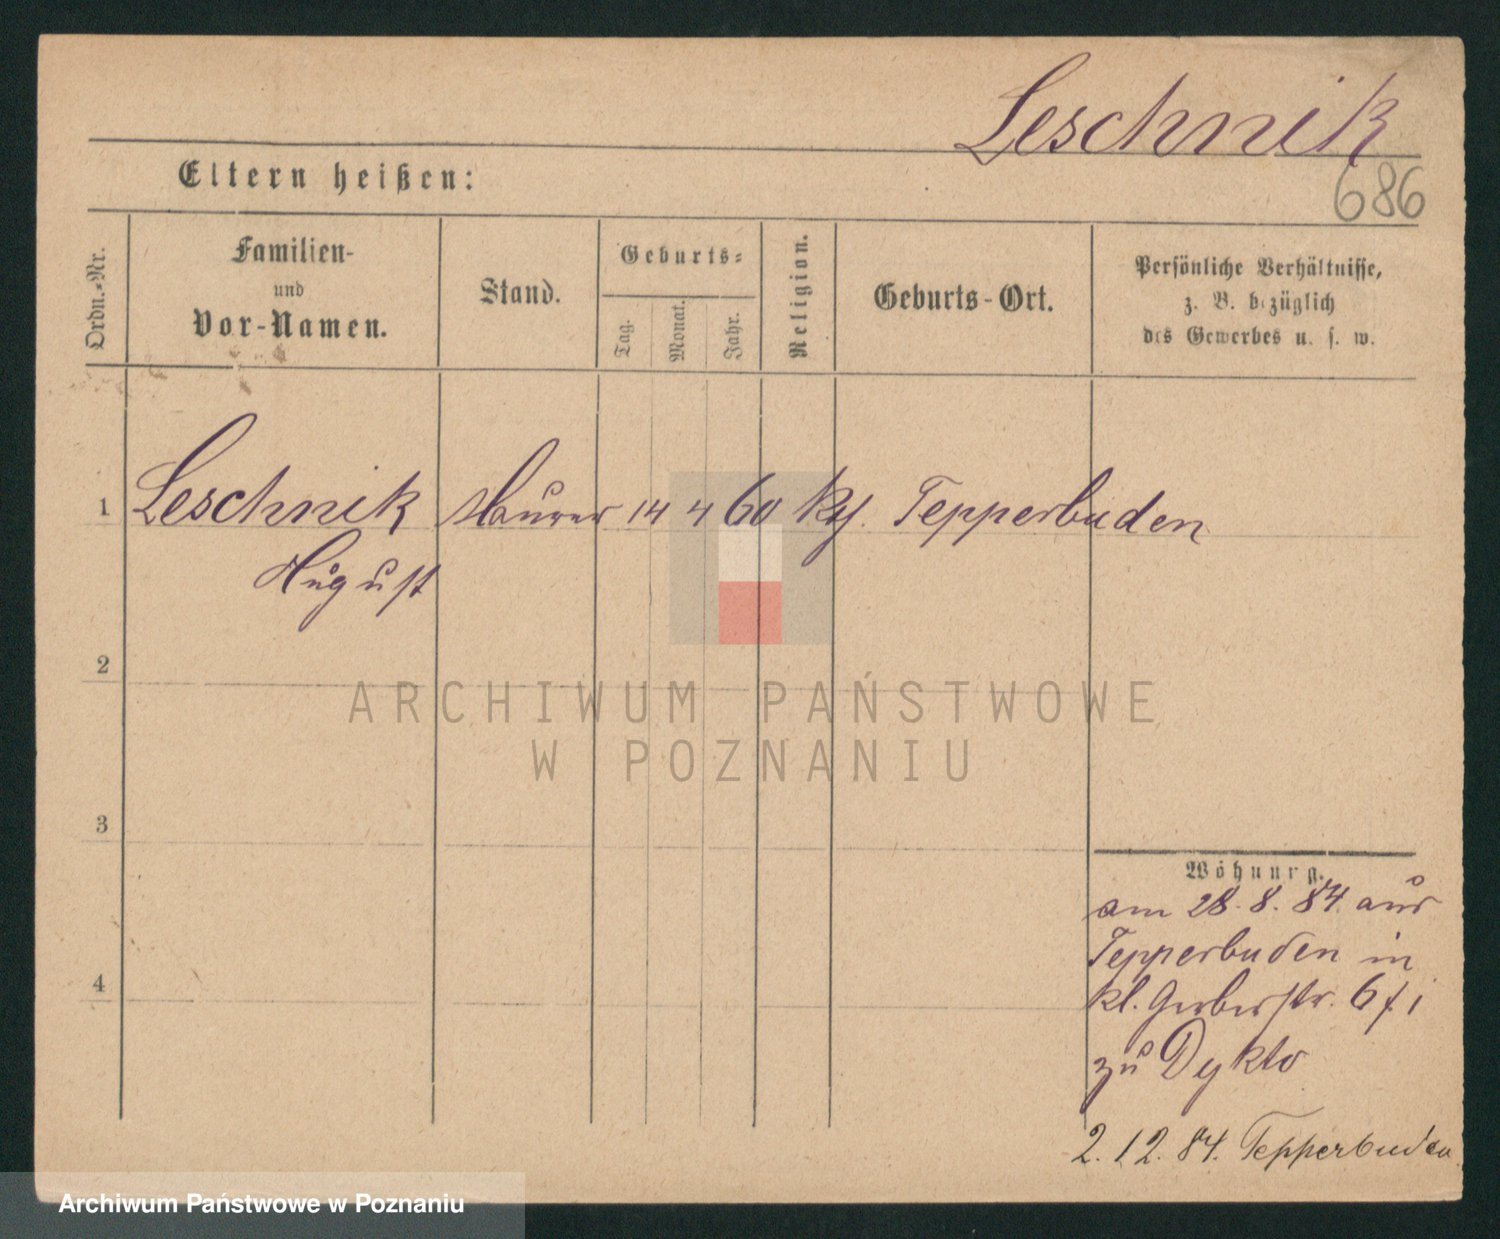 Leschnik
686
Eltern heißen:
Ordn.-Nr.
Familien-
und
Vor-Namen.
Stand.
Geburts-
Tag.
Monat.
Jahr.
Religion.
Geburts-Ort.
Persönliche Verhältnisse,
z. B. bezüglich
des Gewerbes u. s. w.
1 Leschnik Maurer 14 4 60 kth. Tepperbuden
August
2
ARCHIWUM PAŃSTWOWE
W POZNANIU
3
4
Wohnung.
am 28.8.84 aus
Tepperbuden in
kl. Gerberstr. 6 f 1
zu Dykto
2.12.84. Tepperbuden
Archiwum Państwowe w Poznaniu